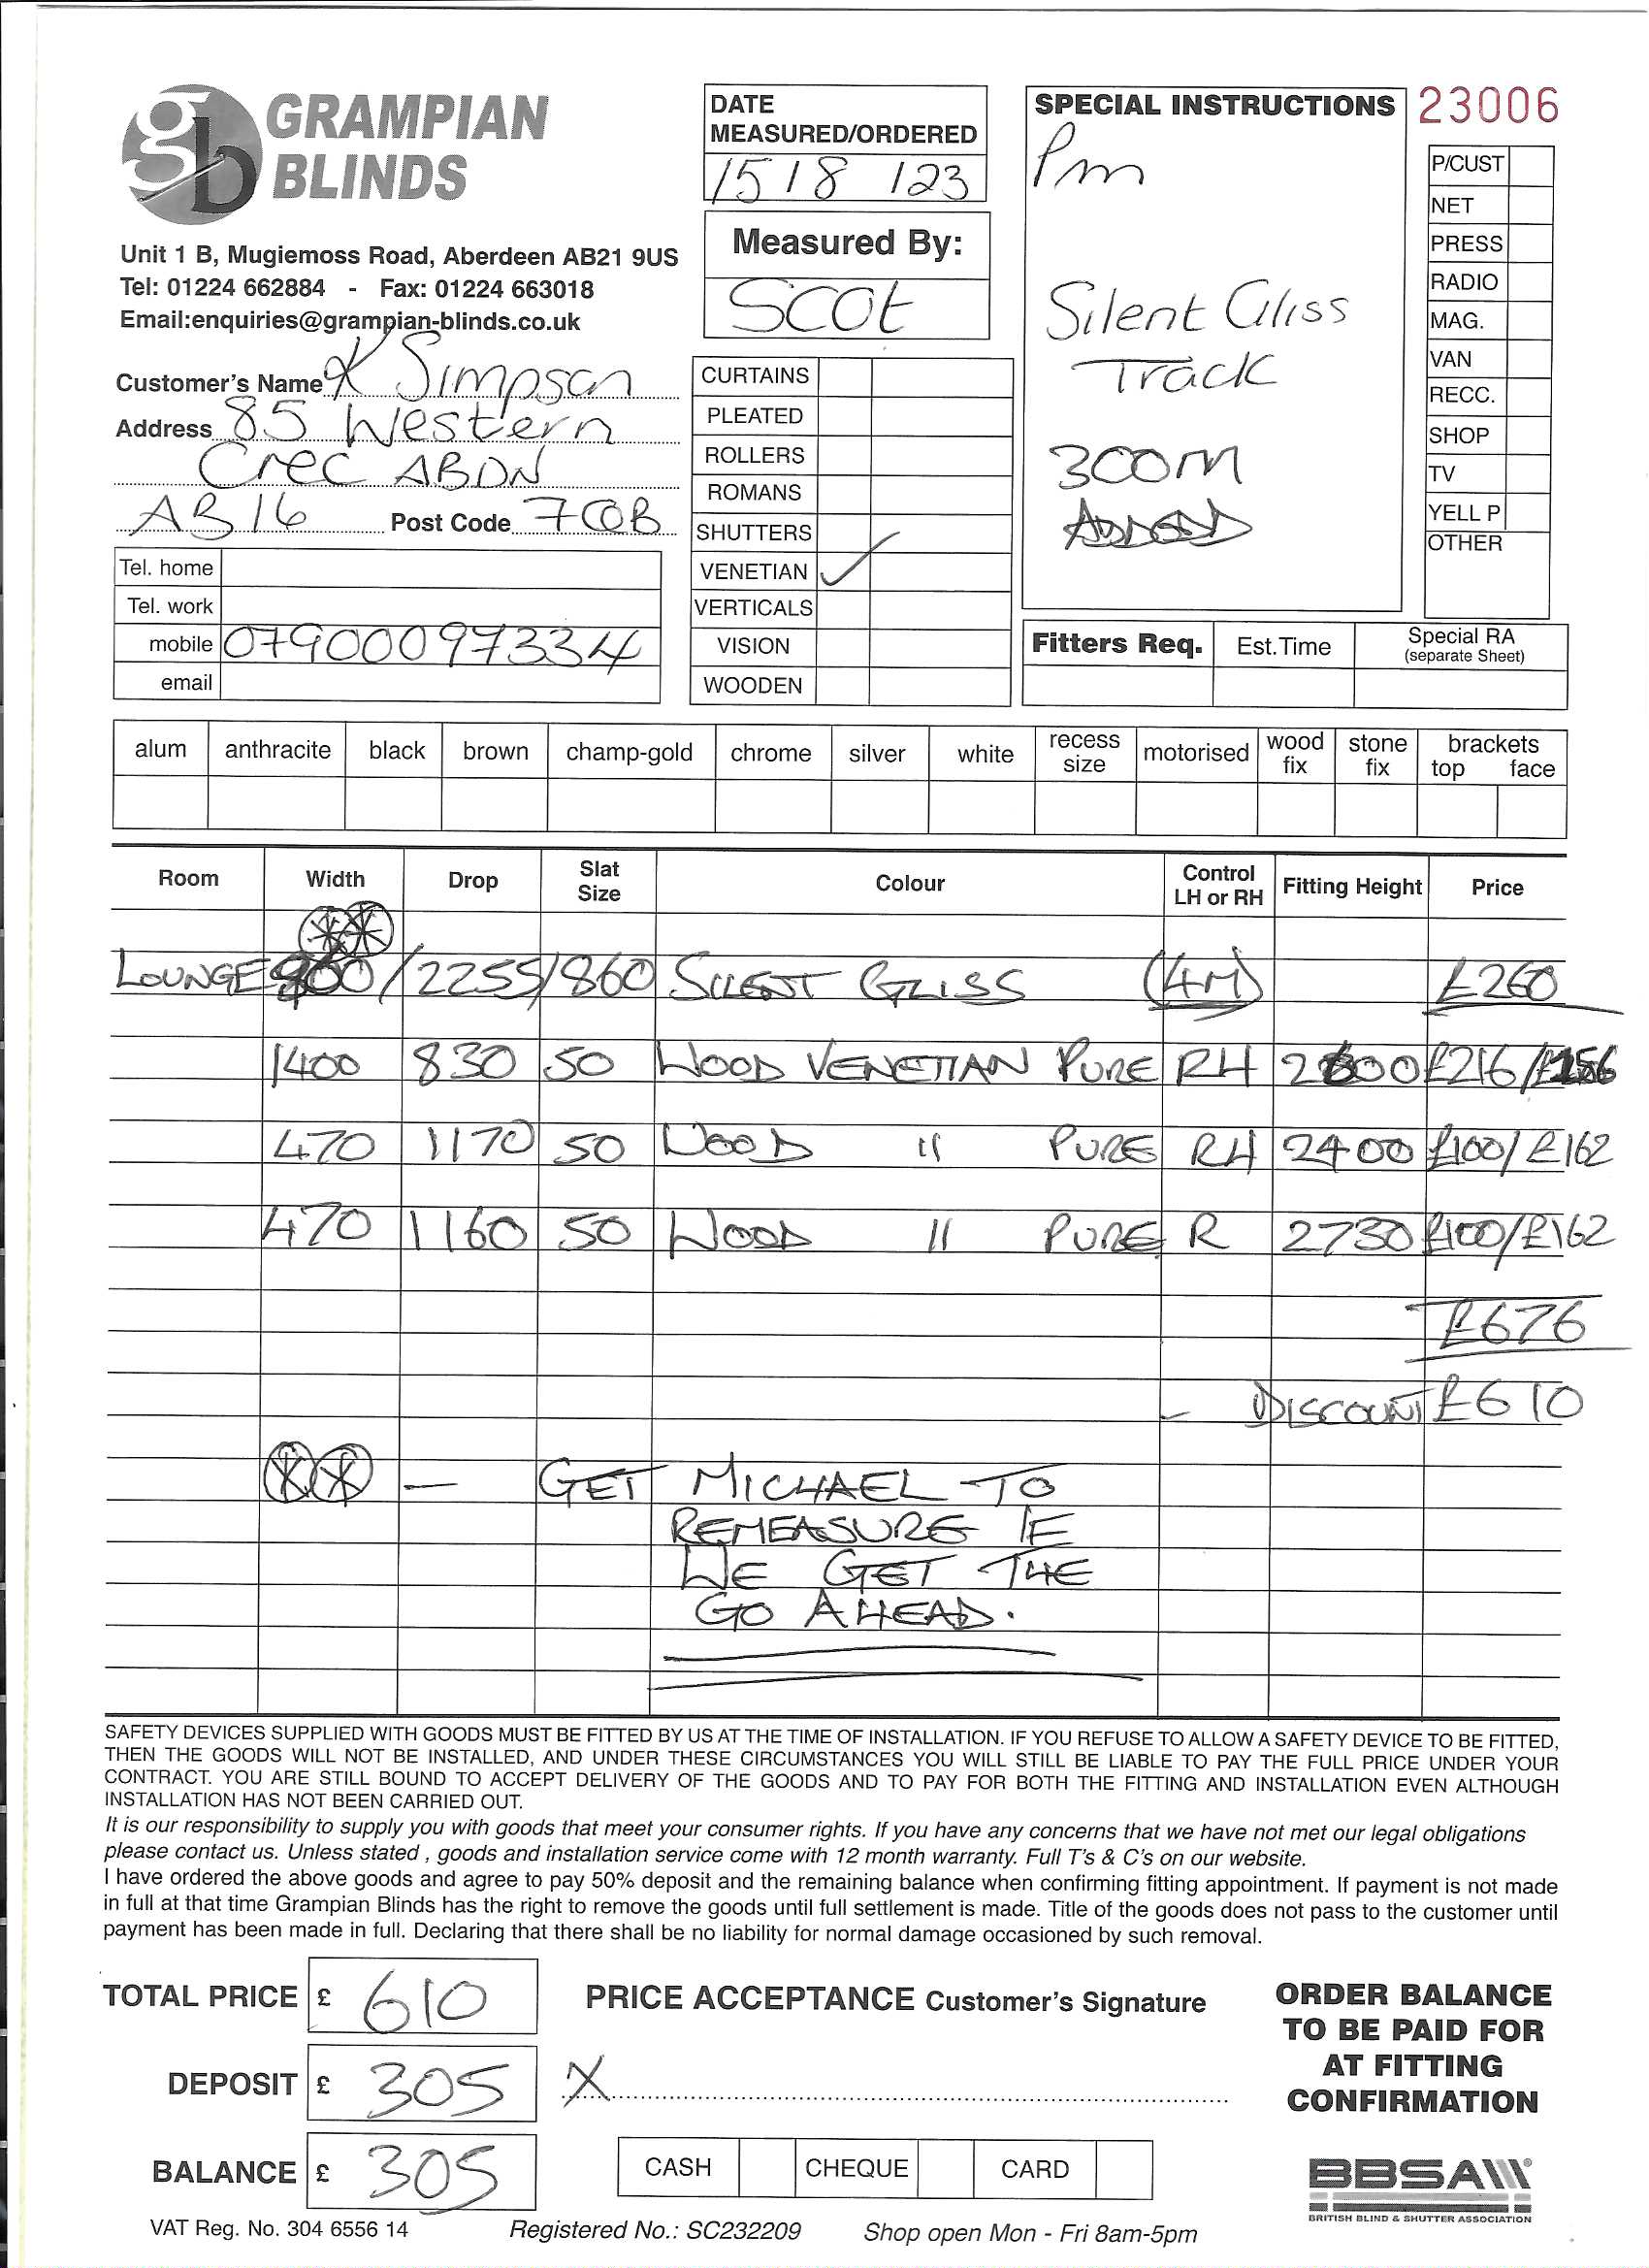 GRAMPIAN
BLINDS
Unit 1 B, Mugiemoss Road, Aberdeen AB21 9US
Tel: 01224 662884 - Fax: 01224 663018
Email:enquiries@grampian-blinds.co.uk
Customer's Name K Simpson
Address 85 Western
Crec ABDN
AB16 Post Code
Tel. home
Tel. work
mobile 07900097334
email
DATE
MEASURED/ORDERED
15/8/23
Measured By:
SCOt
CURTAINS
PLEATED
ROLLERS
ROMANS
SHUTTERS
VENETIAN ✓
VERTICALS
VISION
WOODEN
SPECIAL INSTRUCTIONS
Pm
Silent Gliss
Track
300m
ADDED
23006
P/CUST
NET
PRESS
RADIO
MAG.
VAN
RECC.
SHOP
TV
YELL P
OTHER
Fitters Req. Est.Time Special RA
(separate Sheet)
alum anthracite black brown champ-gold chrome silver white recess size motorised wood fix stone fix brackets top face
Room Width Drop Slat Size Colour Control LH or RH Fitting Height Price
LOUNGE 860/2255/860 SILENT GLISS (4M) £260
1400 830 50 WOOD VENETIAN PURE RH £216/
470 1170 50 WOOD " PURE RH 2400 £100/£162
470 1160 50 WOOD " PURE R 2730 £100/£162
£676
- DISCOUNT £610
** — GET MICHAEL TO
REMEASURE IF
WE GET THE
GO AHEAD.
SAFETY DEVICES SUPPLIED WITH GOODS MUST BE FITTED BY US AT THE TIME OF INSTALLATION. IF YOU REFUSE TO ALLOW A SAFETY DEVICE TO BE FITTED,
THEN THE GOODS WILL NOT BE INSTALLED, AND UNDER THESE CIRCUMSTANCES YOU WILL STILL BE LIABLE TO PAY THE FULL PRICE UNDER YOUR
CONTRACT. YOU ARE STILL BOUND TO ACCEPT DELIVERY OF THE GOODS AND TO PAY FOR BOTH THE FITTING AND INSTALLATION EVEN ALTHOUGH
INSTALLATION HAS NOT BEEN CARRIED OUT.
It is our responsibility to supply you with goods that meet your consumer rights. If you have any concerns that we have not met our legal obligations
please contact us. Unless stated , goods and installation service come with 12 month warranty. Full T's & C's on our website.
I have ordered the above goods and agree to pay 50% deposit and the remaining balance when confirming fitting appointment. If payment is not made
in full at that time Grampian Blinds has the right to remove the goods until full settlement is made. Title of the goods does not pass to the customer until
payment has been made in full. Declaring that there shall be no liability for normal damage occasioned by such removal.
TOTAL PRICE £ 610
DEPOSIT £ 305
BALANCE £ 305
PRICE ACCEPTANCE Customer's Signature
X
CASH CHEQUE CARD
ORDER BALANCE
TO BE PAID FOR
AT FITTING
CONFIRMATION
BBSA
BRITISH BLIND & SHUTTER ASSOCIATION
VAT Reg. No. 304 6556 14 Registered No.: SC232209 Shop open Mon - Fri 8am-5pm